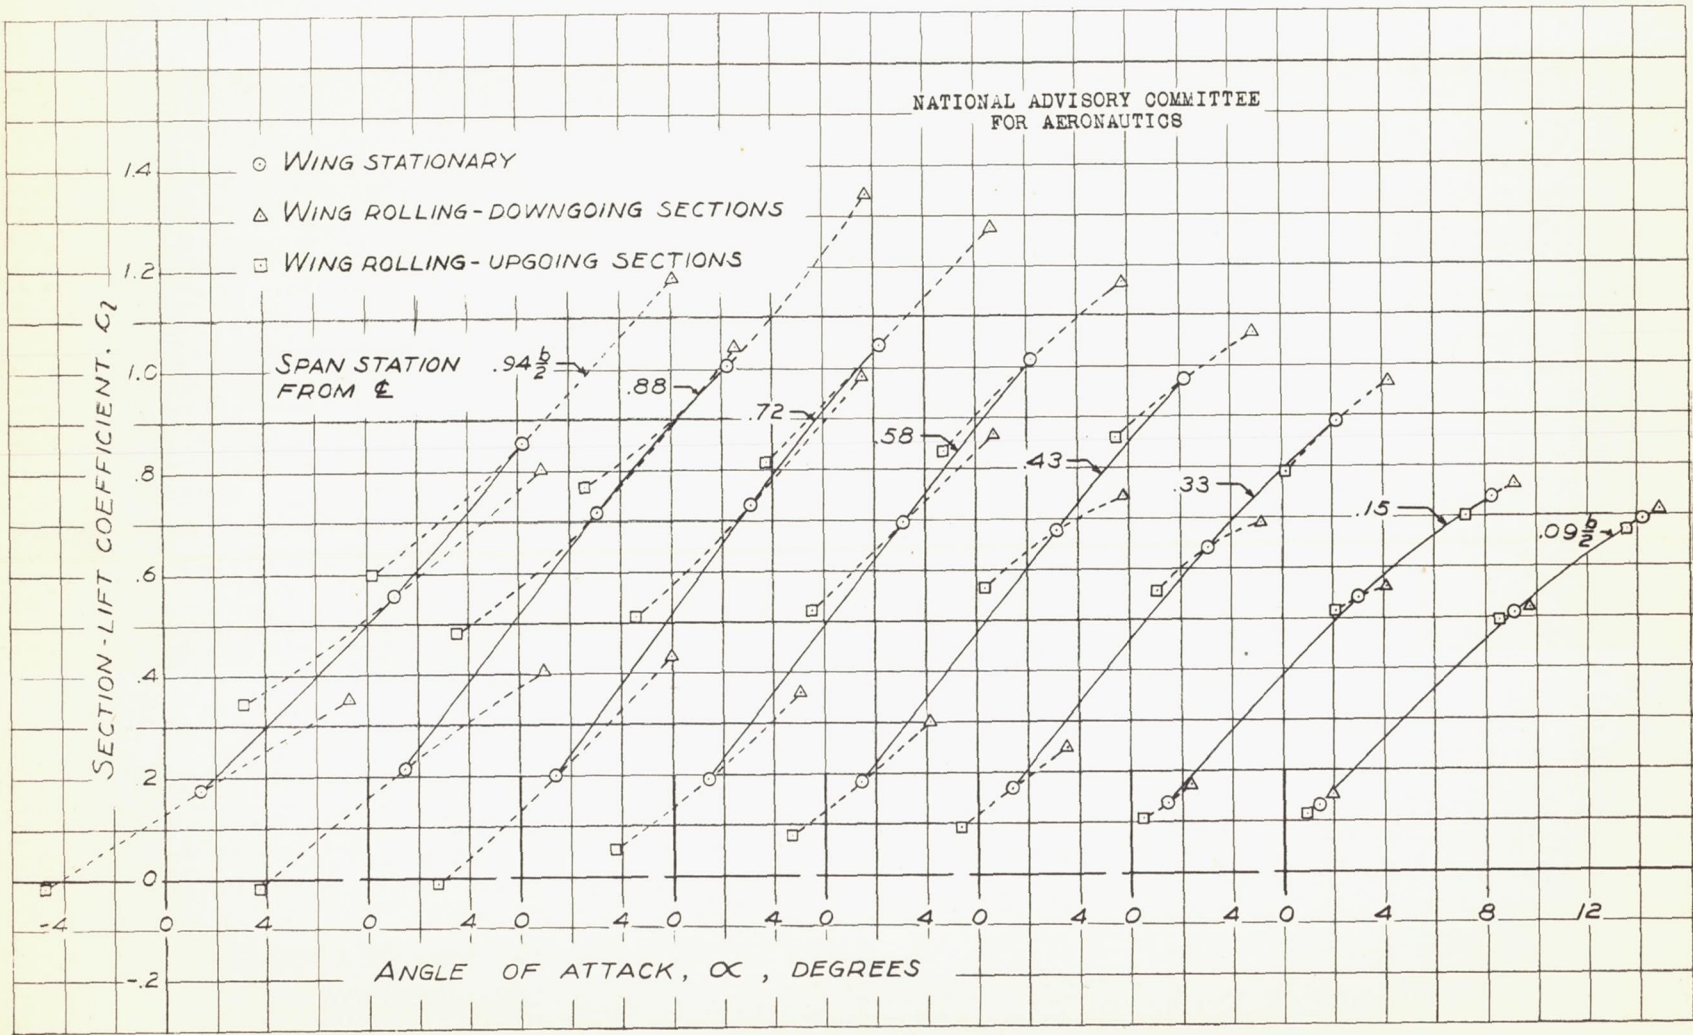 NATIONAL ADVISORY COMMITTEE
FOR AERONAUTICS
⊙ WING STATIONARY
△ WING ROLLING-DOWNGOING SECTIONS
⊡ WING ROLLING-UPGOING SECTIONS
SPAN STATION
FROM ℄
.94 b/2
.88
.72
.58
.43
.33
.15
.09 b/2
SECTION-LIFT COEFFICIENT, Cl
1.4
1.2
1.0
.8
.6
.4
.2
0
-.2
-4 0 4 0 4 0 4 0 4 0 4 0 4 0 4 0 4 8 12
ANGLE OF ATTACK, ∝, DEGREES